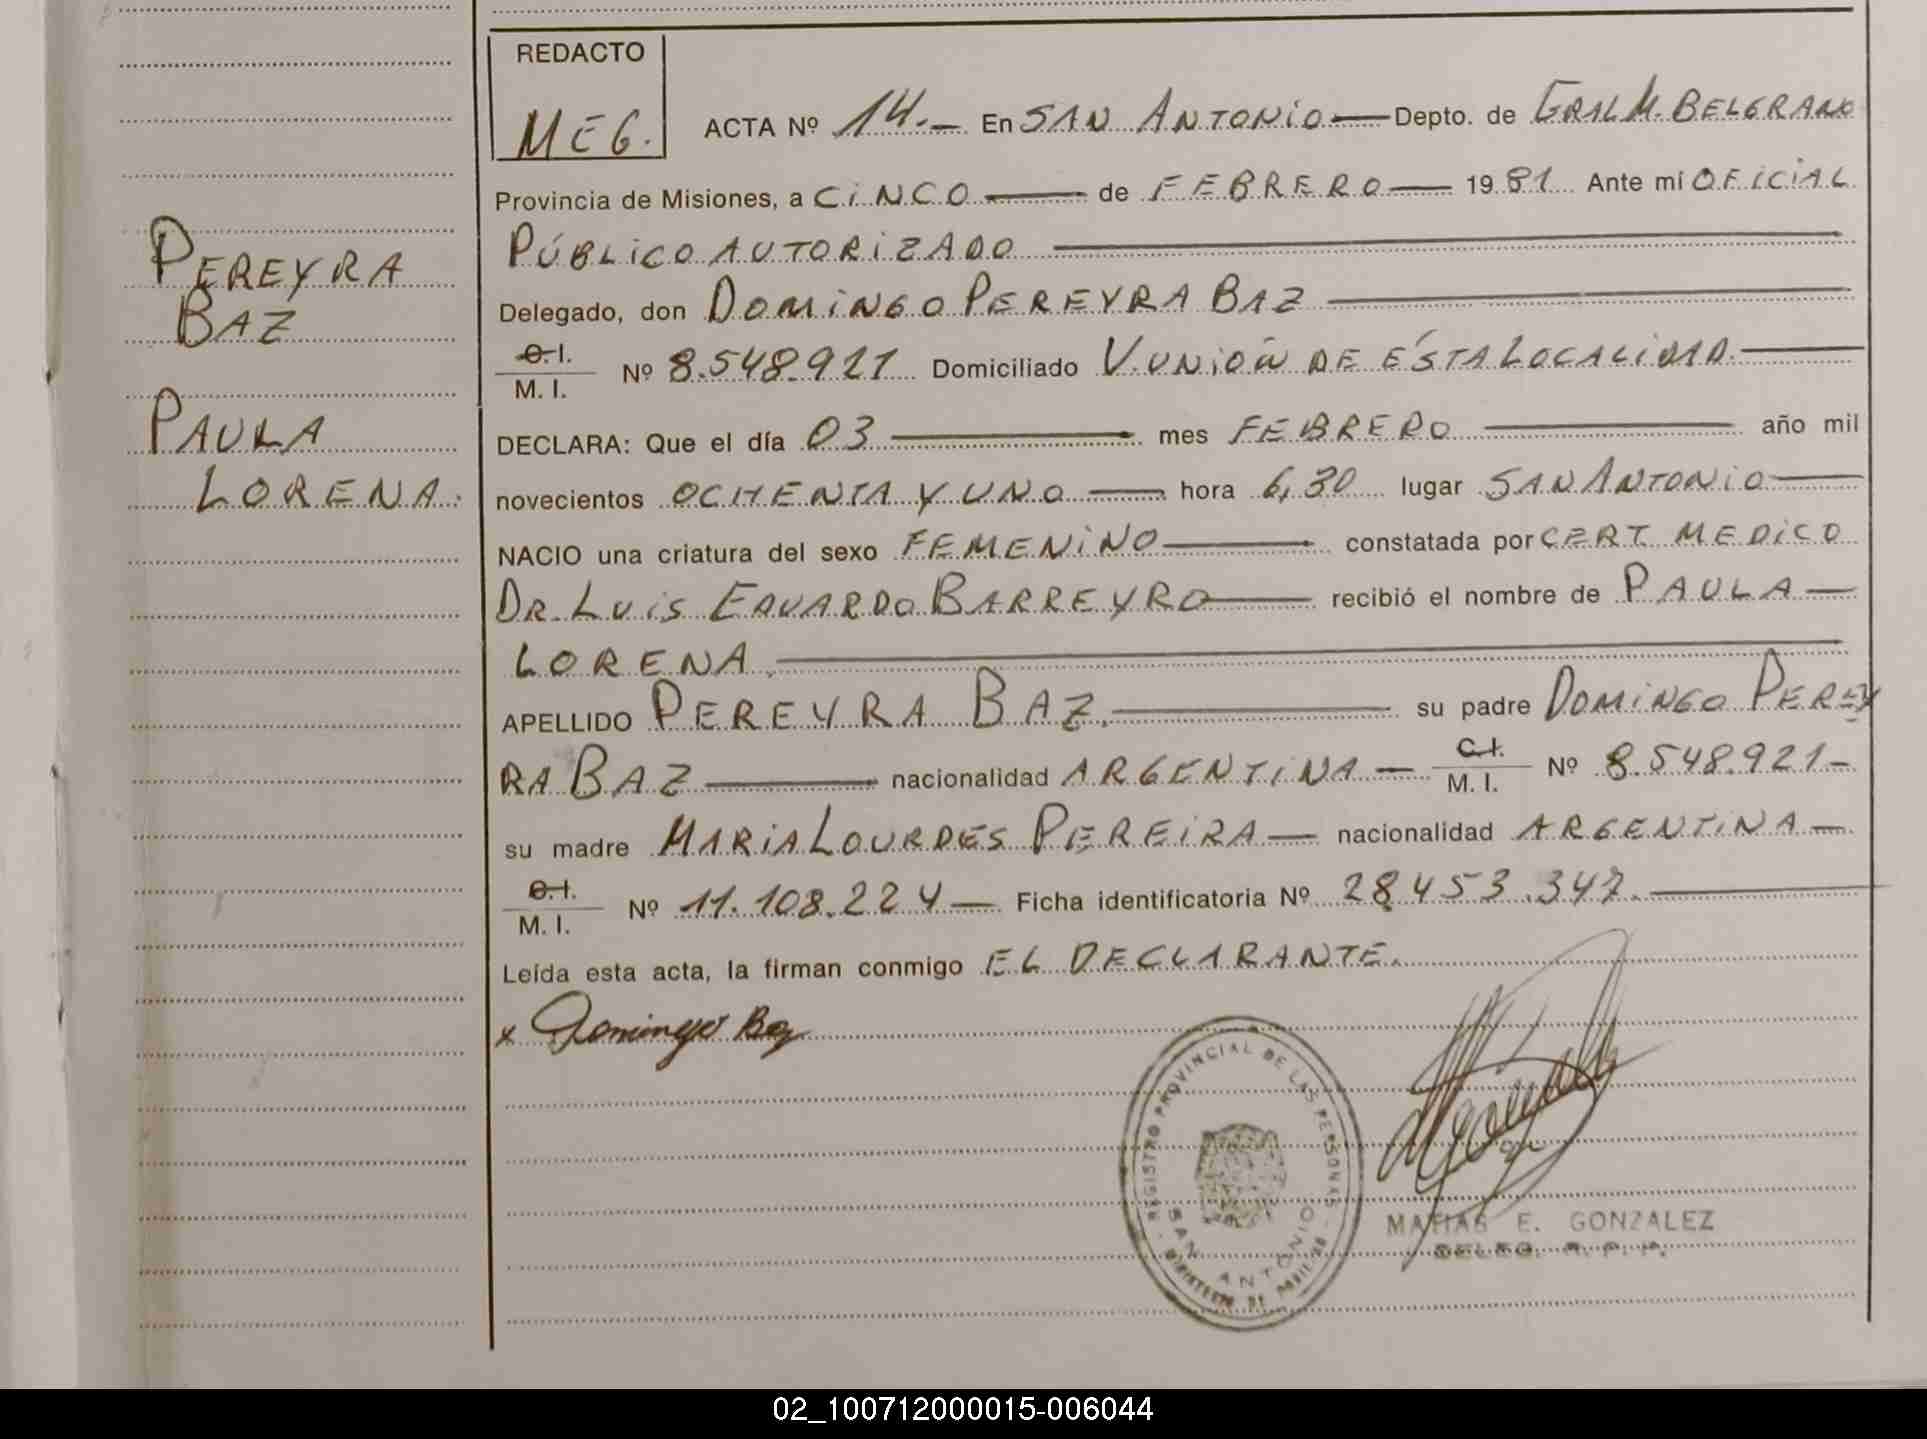 REDACTO
MEG.
ACTA Nº 14.- En SAN ANTONIO — Depto. de GRAL M. BELGRANO
Provincia de Misiones, a CINCO — de FEBRERO — 1981 Ante mí OFICIAL
PÚBLICO AUTORIZADO
Delegado, don DOMINGO PEREYRA BAZ
C.I.
M. I. Nº 8.548.921 Domiciliado V. UNIÓN DE ÉSTA LOCALIDAD.
DECLARA: Que el día 03 — mes FEBRERO — año mil
novecientos OCHENTA Y UNO — hora 6,30 lugar SAN ANTONIO
NACIO una criatura del sexo FEMENINO — constatada por CERT. MEDICO
DR. LUIS EDUARDO BARREYRO — recibió el nombre de PAULA —
LORENA
APELLIDO PEREYRA BAZ. — su padre DOMINGO PEREY
RA BAZ — nacionalidad ARGENTINA — C.I.
M. I. Nº 8.548.921-
su madre MARIA LOURDES PEREIRA — nacionalidad ARGENTINA —
C.I.
M. I. Nº 11.108.224 — Ficha identificatoria Nº 28.453.347.
Leída esta acta, la firman conmigo EL DECLARANTE.
x Domingo Baz
PEREYRA
BAZ
PAULA
LORENA.
REGISTRO PROVINCIAL DE LAS PERSONAS
SAN ANTONIO
MATIAS E. GONZALEZ
DELEG. R. P. P.
02_100712000015-006044